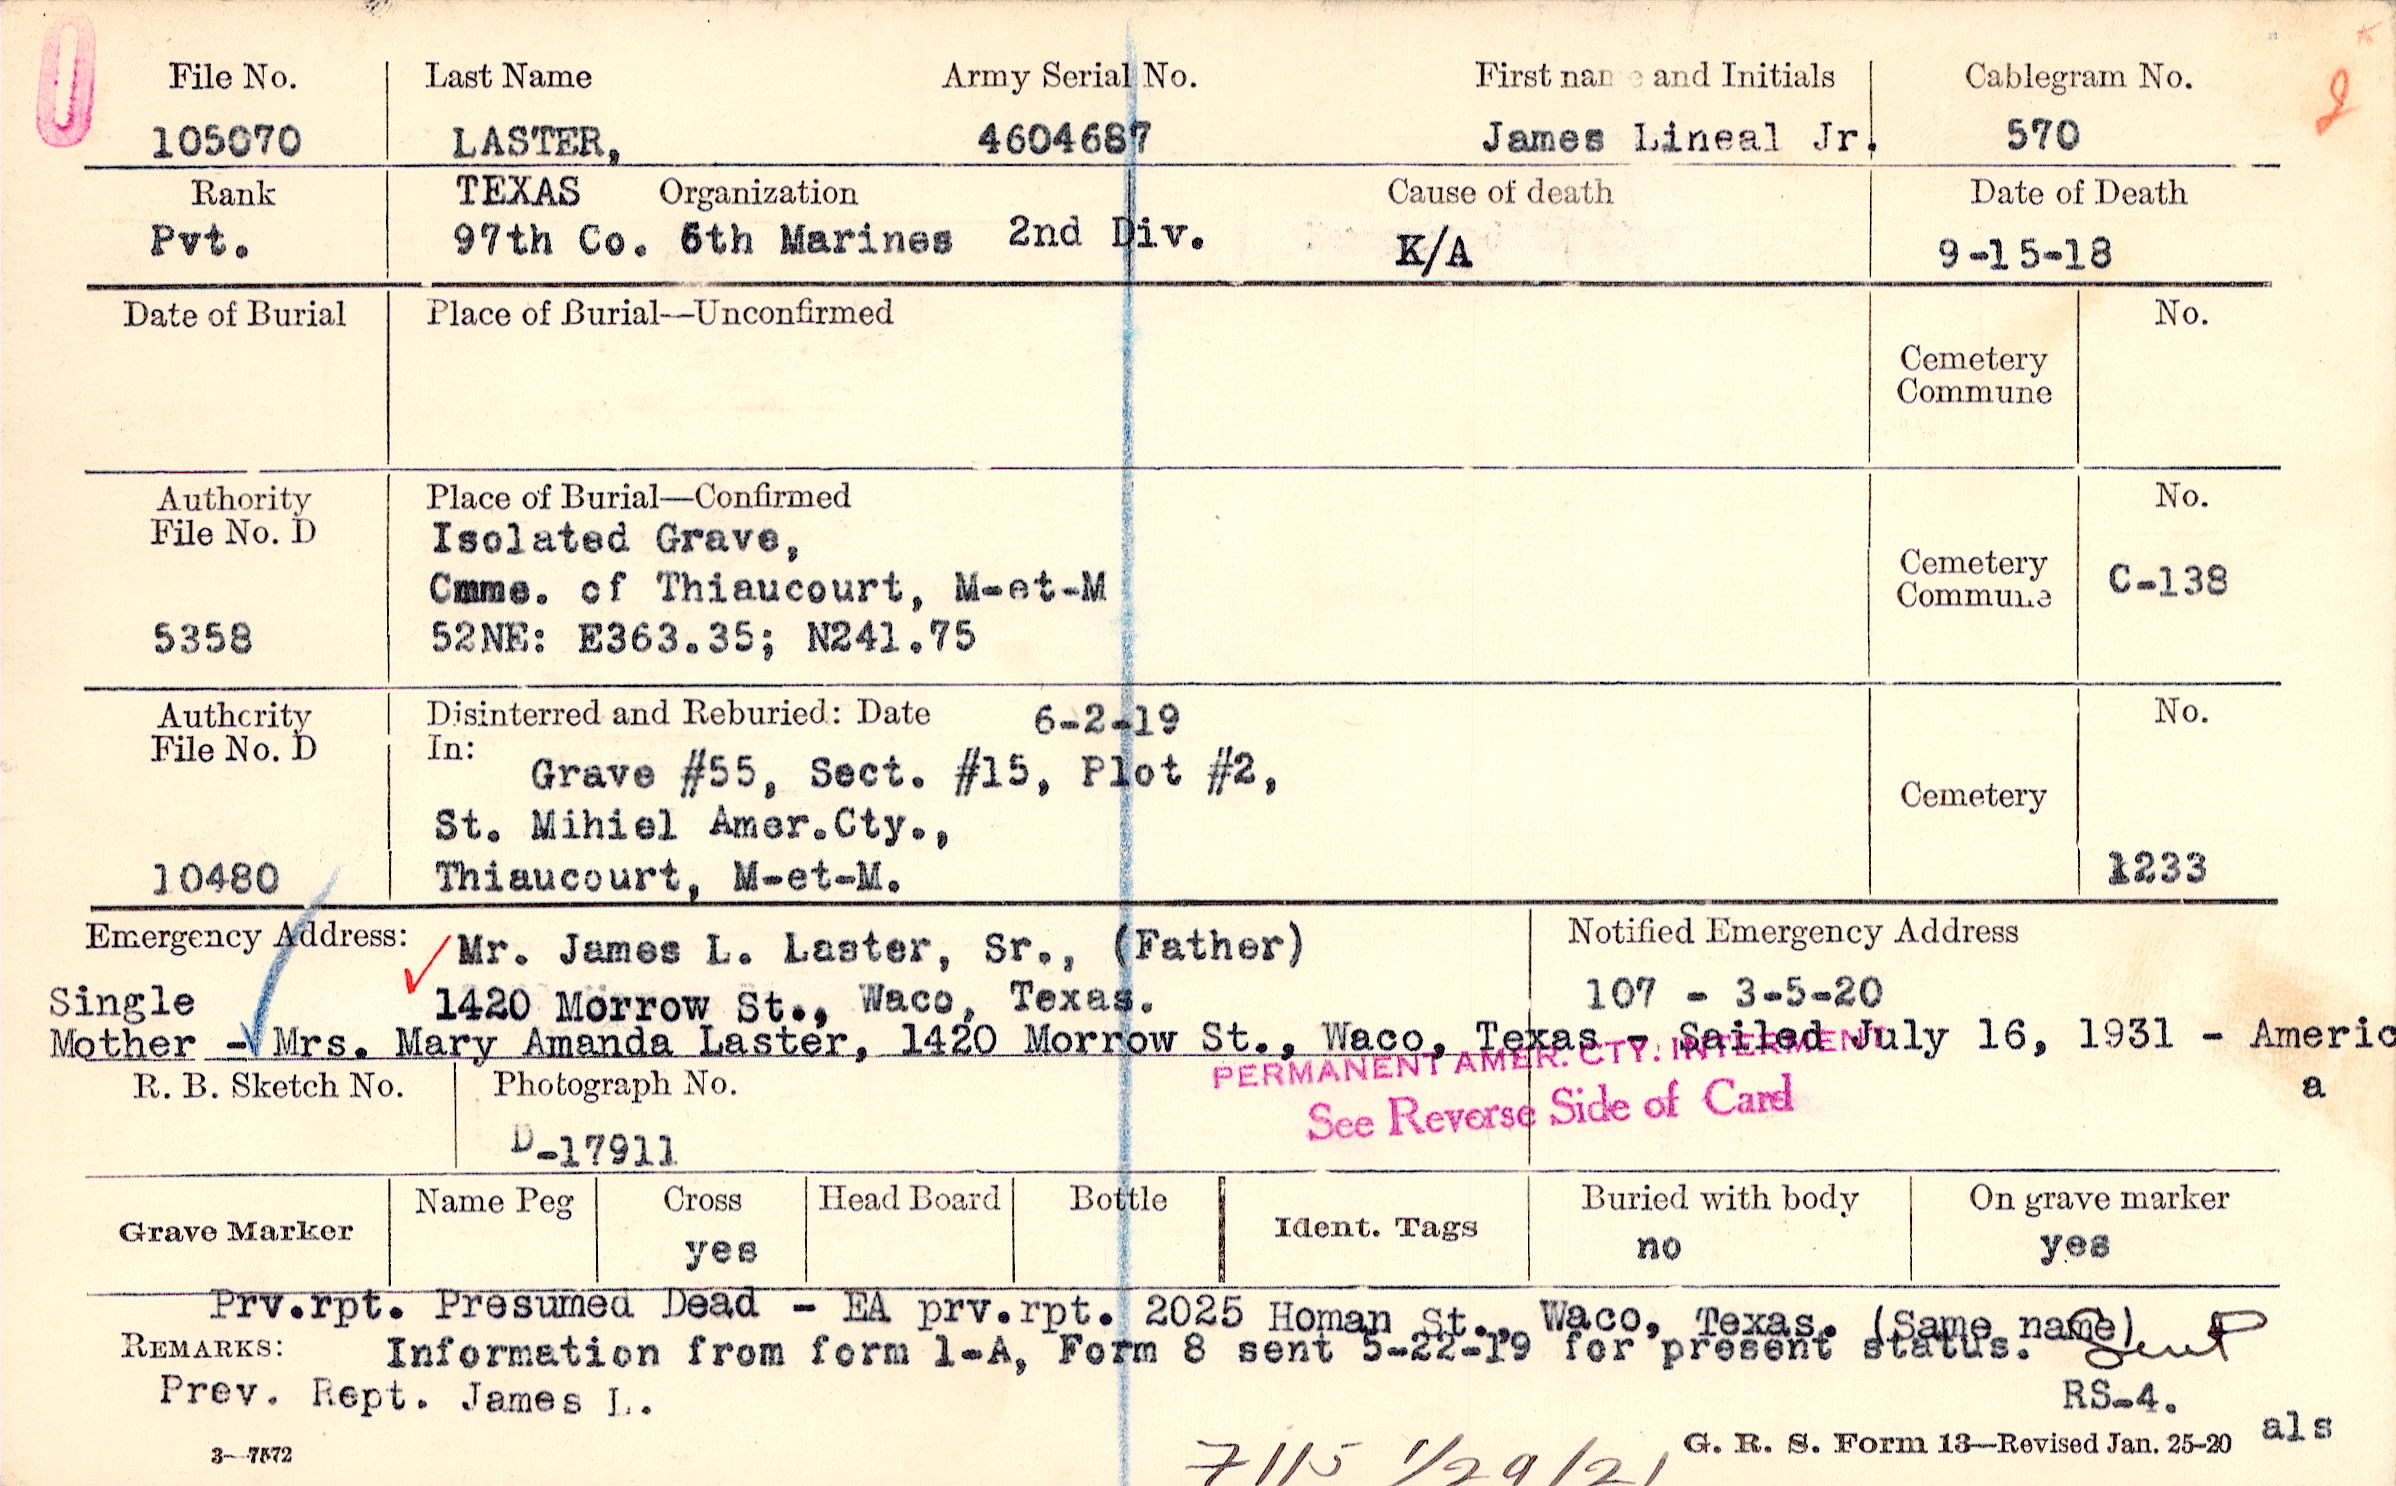 File No. Last Name Army Serial No. First name and Initials Cablegram No.
105070 LASTER, 4604687 James Lineal Jr. 570
Rank TEXAS Organization Cause of death Date of Death
Pvt. 97th Co. 6th Marines 2nd Div. K/A 9-15-18
Date of Burial Place of Burial—Unconfirmed No.
Cemetery
Commune
Authority Place of Burial—Confirmed No.
File No. D Isolated Grave,
Cemetery
Cmme. of Thiaucourt, M-et-M C-138
Commune
5358 52NE: E363.35; N241.75
Authority Disinterred and Reburied: Date 6-2-19 No.
File No. D In:
Grave #55, Sect. #15, Plot #2,
Cemetery
St. Mihiel Amer.Cty.,
10480 Thiaucourt, M-et-M. 1233
Emergency Address: Mr. James L. Laster, Sr., (Father) Notified Emergency Address
Single 1420 Morrow St., Waco, Texas. 107 - 3-5-20
Mother - Mrs. Mary Amanda Laster, 1420 Morrow St., Waco, Texas - Sailed July 16, 1931 - Americ
a
PERMANENT AMER. CTY. INTERMENT
R. B. Sketch No. Photograph No.
See Reverse Side of Card
D-17911
Grave Marker Name Peg Cross Head Board Bottle Ident. Tags Buried with body On grave marker
yes no yes
Prv.rpt. Presumed Dead - EA prv.rpt. 2025 Homan St., Waco, Texas. (Same name)
REMARKS: Information from form 1-A, Form 8 sent 5-22-19 for present status.
Prev. Rept. James L. RS-4.
als
3—7572 7115 1/29/21 G. R. S. Form 13—Revised Jan. 25-20